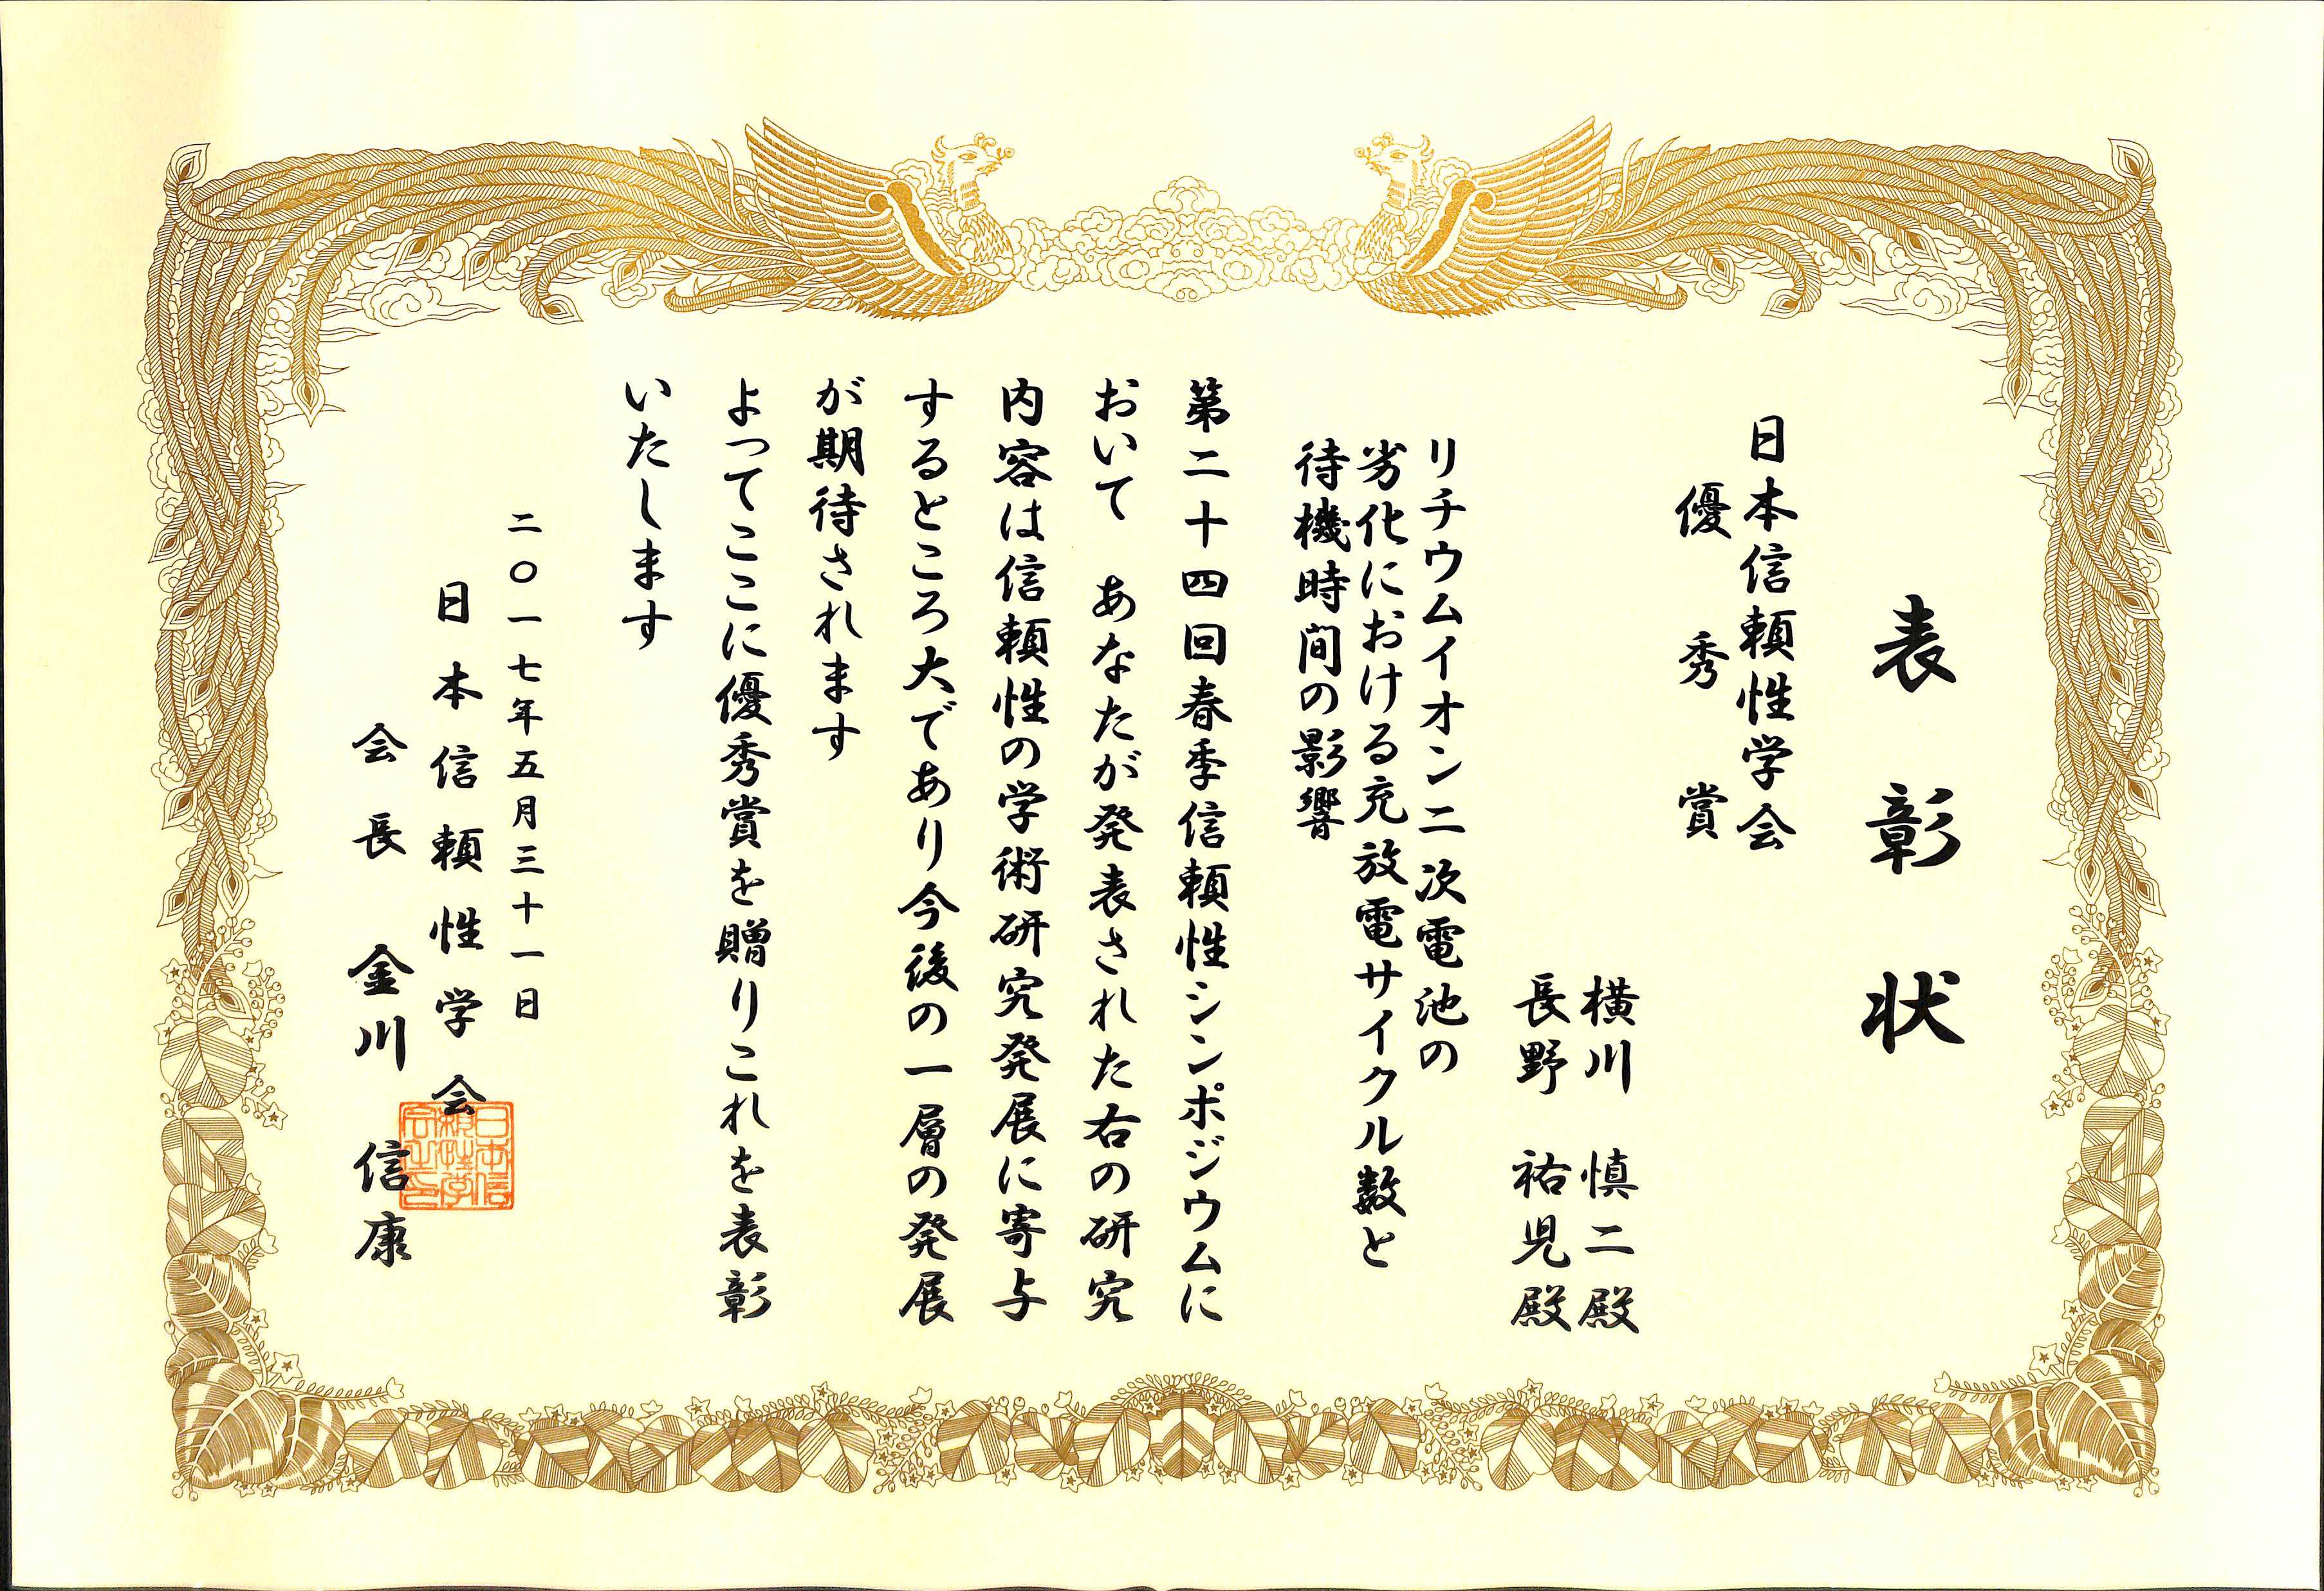 表彰状
日本信頼性学会
優秀賞
横川 慎二殿
長野 祐児殿
リチウムイオン二次電池の
劣化における充放電サイクル数と
待機時間の影響
第二十四回春季信頼性シンポジウムに
おいて あなたが発表された右の研究
内容は信頼性の学術研究発展に寄与
するところ大であり今後の一層の発展
が期待されます
よってここに優秀賞を贈りこれを表彰
いたします
二〇一七年五月三十一日
日本信頼性学会
会長 金川 信康
日本信
頼性学
会之印